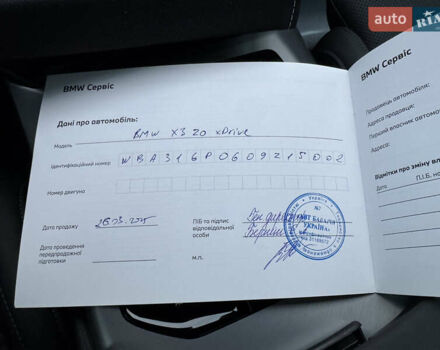 auto RIA
BMW Сервіс
Дані про автомобіль:
Модель BMW X3 20 xDrive
Ідентифікаційний номер WBA316P0609215002
Номер двигуна
Дата продажу 28.03.2025
ПІБ та підпис відповідальної особи
Дата проведення передпродажної підготовки
м.п.
Україна
№2
УКРАЇНА»
BMW Сервіс
Продавець автомобіля:
Адреса продавця:
Перший власник автомо
Адреса:
Відмітки про зміну вл
Дата
П.І.Б. но